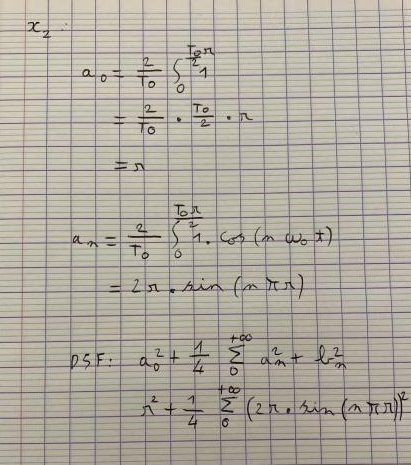 x₂ :
a₀ = 2/T₀ ∫₀^(T₀r/2) 1
= 2/T₀ · T₀/2 · r
= r
aₙ = 2/T₀ ∫₀^(T₀r/2) 1. cos(n ω₀ t)
= 2r . sin(nπr)
DSF: a₀² + 1/4 Σ₀^(+∞) aₙ² + bₙ²
r² + 1/4 Σ₀^(+∞) (2r . sin(nπr))²